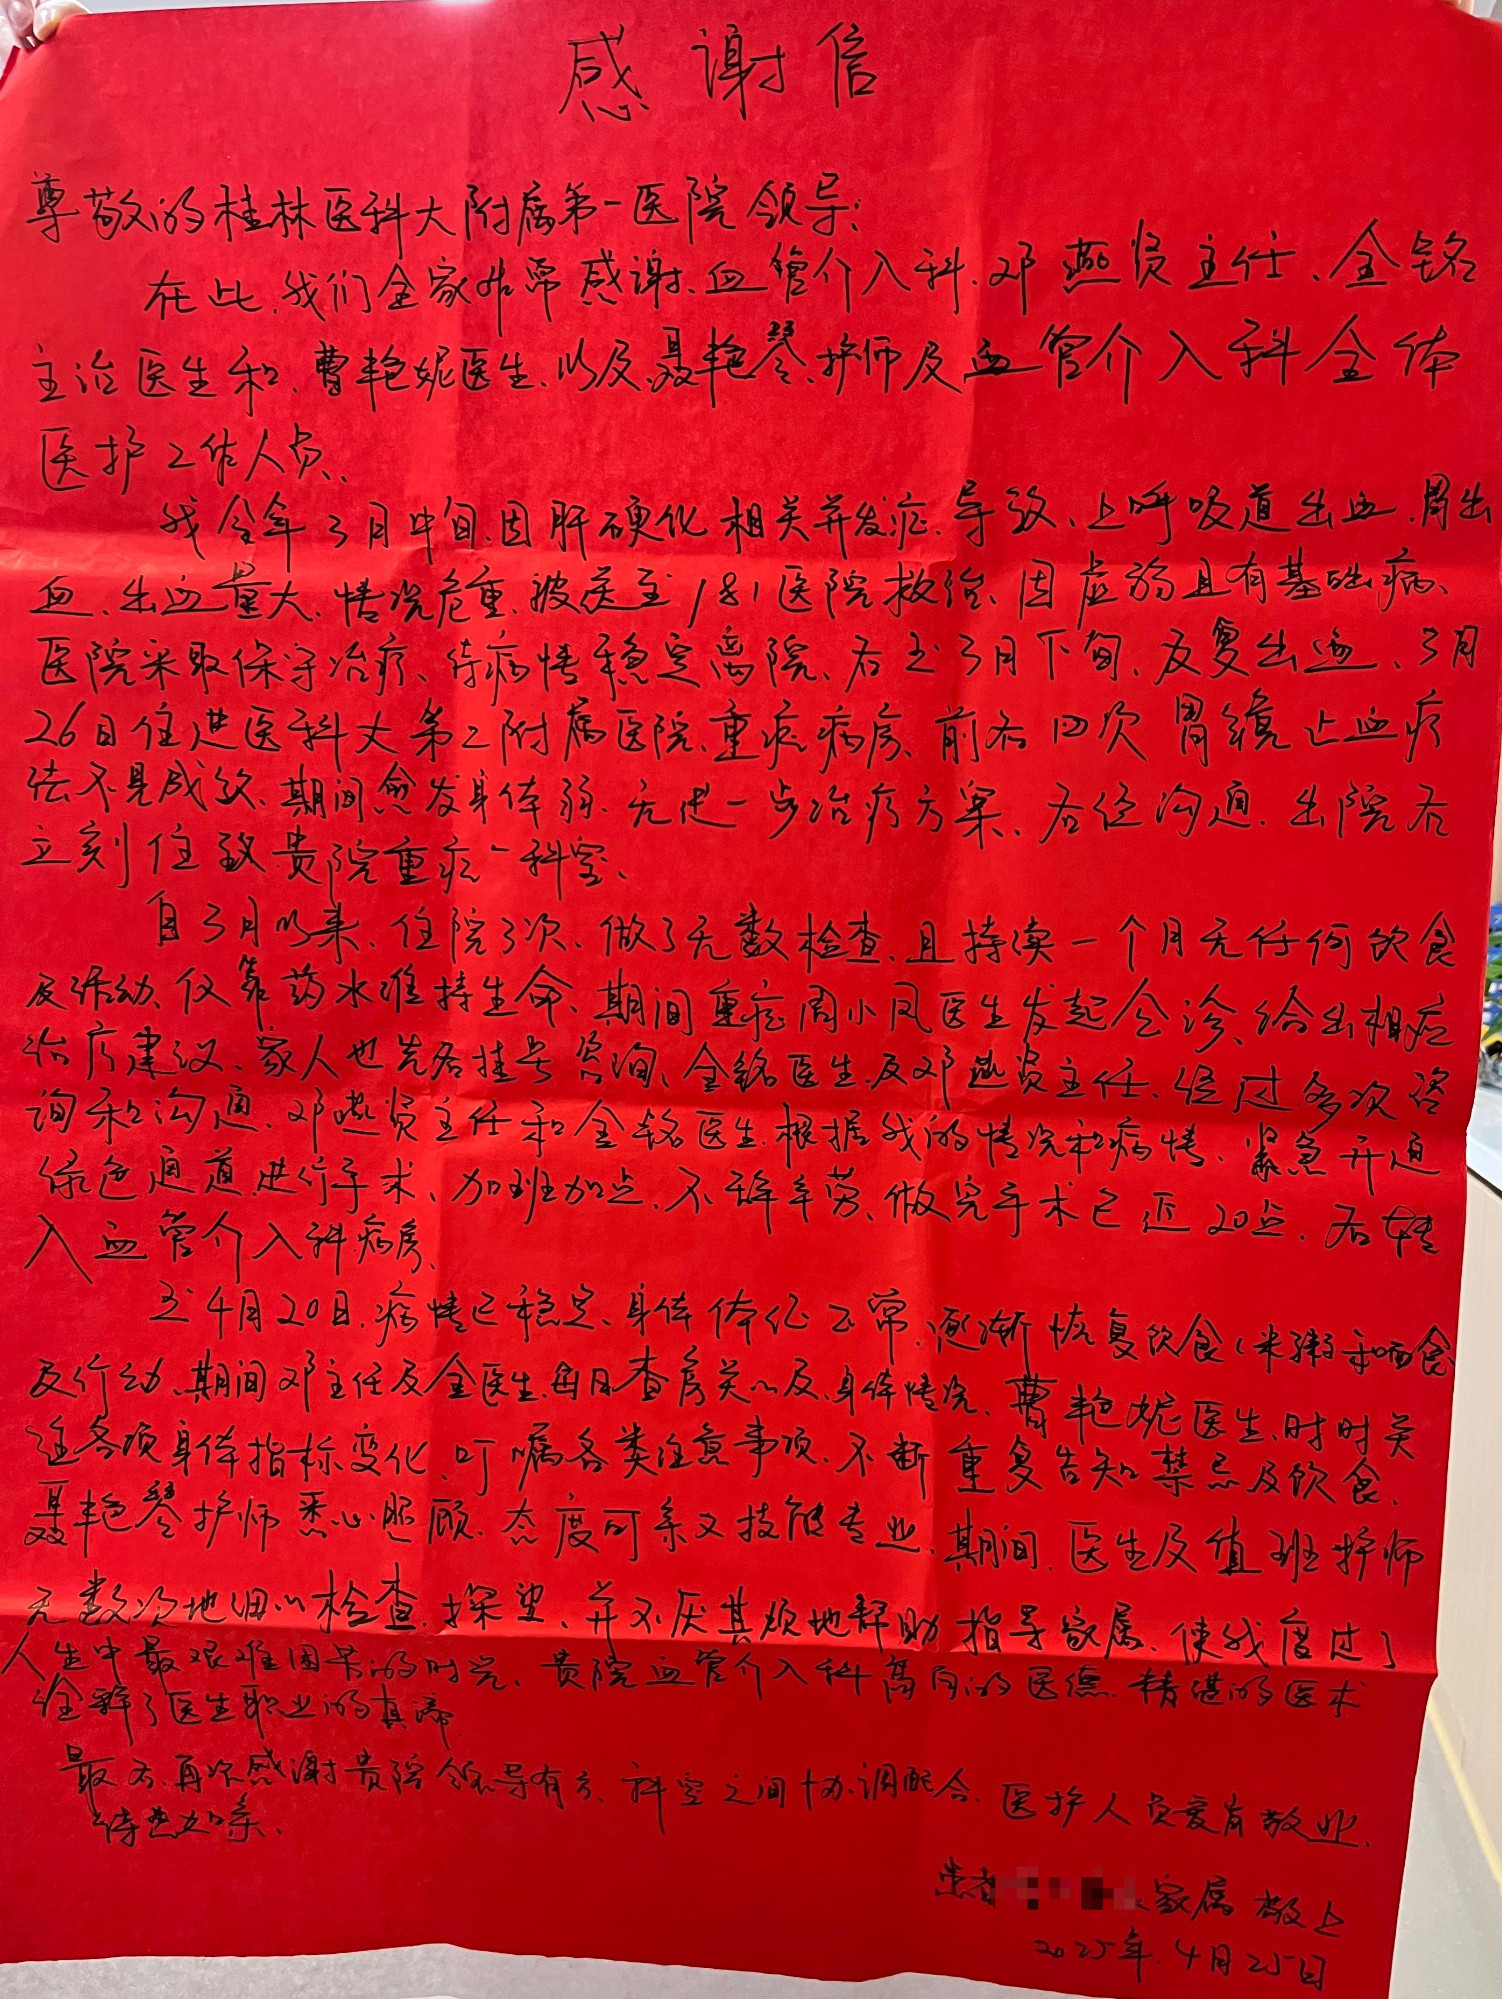 感谢信
尊敬的桂林医科大附属第一医院领导：
在此、我们全家非常感谢、血管介入科、邓燕贤主任、金铭
主治医生和、曹艳妮医生、以及、聂艳琴、护师及血管介入科全体
医护工作人员、
我今年3月中旬、因肝硬化相关并发症、导致、上呼吸道出血、胃出
血、出血量大、情况危重、被送至181医院救治、因虚弱且有基础病、
医院采取保守治疗、待病情稳定离院、后至3月下旬、反复出血、3月
26日住进医科大第二附属医院、重症病房、前后四次胃镜止血疗
法不见成效、期间愈发身体弱、无进一步治疗方案、后经沟通、出院后
立刻住致贵院重症一科室、
自3月以来、住院3次、做了无数检查、且持续一个月无任何饮食
及活动、仅靠药水维持生命、期间重症周小凤医生发起会诊、给出相应
治疗建议、家人也先后挂号咨询、金铭医生、及邓燕贤主任、经过多次咨
询和沟通、邓燕贤主任和金铭医生、根据我的情况和病情、紧急开通
绿色通道、进行手术、加班加点、不辞辛劳、做完手术已近20点、后转
入血管介入科病房、
至4月20日、病情已稳定、身体体征正常、逐渐恢复饮食（米粥和面食
及行动、期间邓主任及金医生、每日查房关心及、身体情况、曹艳妮医生、时时关
注各项身体指标变化、叮嘱各类注意事项、不断重复告知禁忌及饮食、
聂艳琴护师悉心照顾、态度可亲又技能专业、期间、医生及值班护师
无数次地细心检查、探望、并不厌其烦地帮助指导家属、使我度过了
人生中最艰难困苦的时光、贵院血管介入科高尚的医德、精湛的医术
诠释了医生职业的真谛
最后、再次感谢贵院领导有方、科室之间协调配合、医护人员爱岗敬业、
待患如亲、
患者 家属 敬上
2025年、4月25日